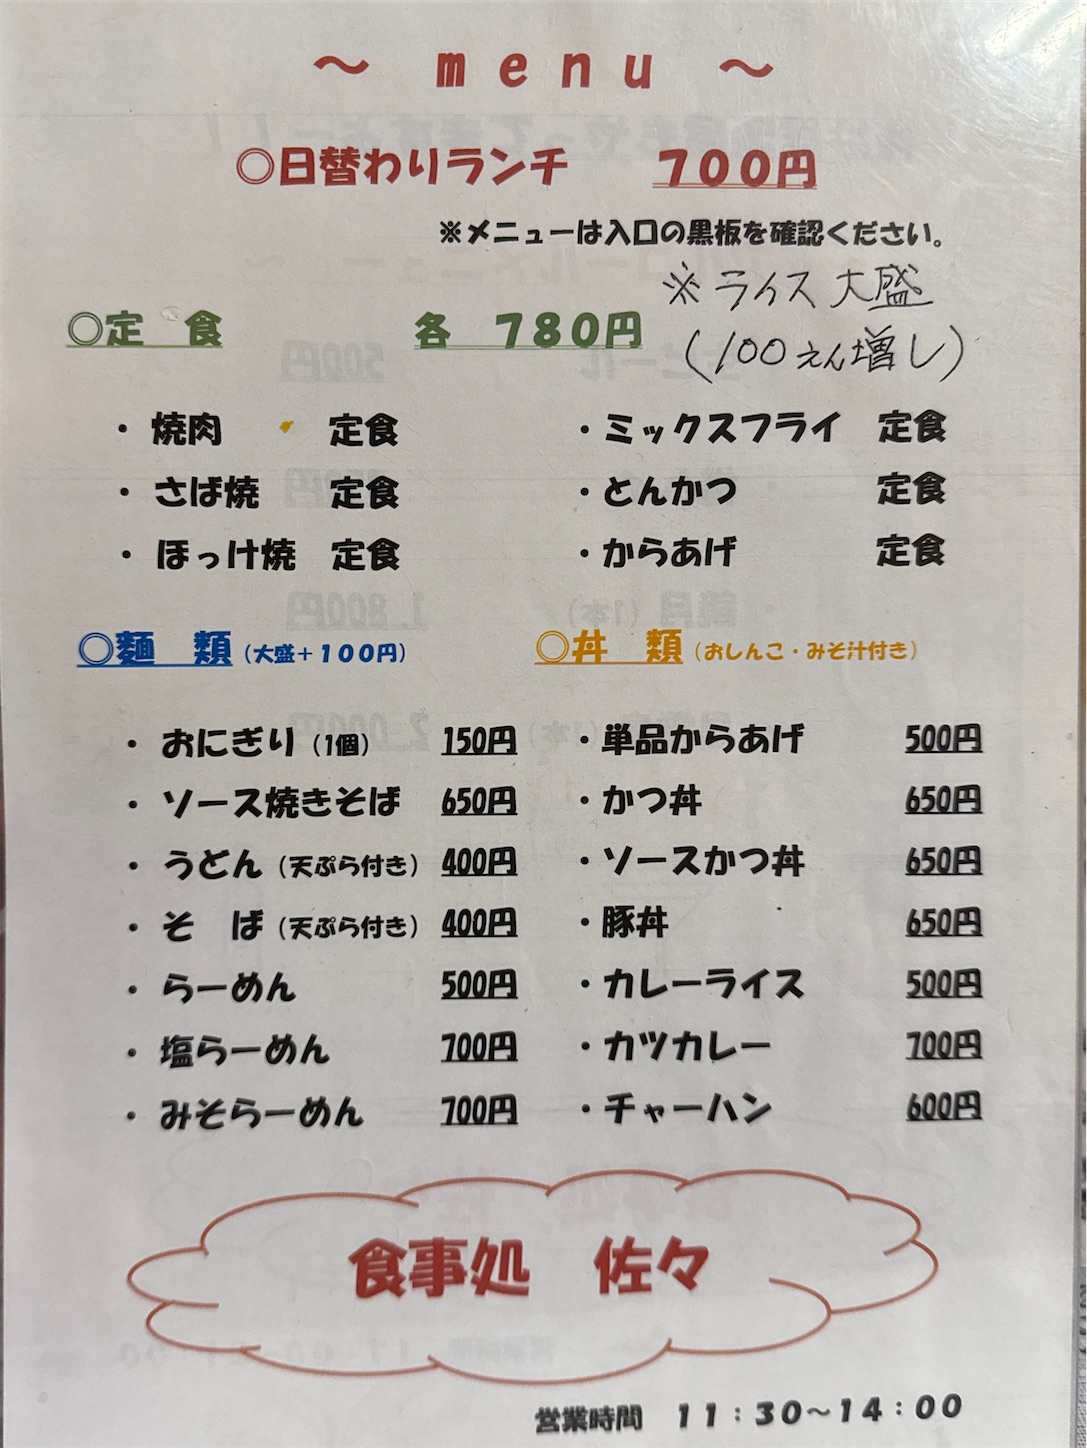 ～ menu ～
○日替わりランチ 700円
※メニューは入口の黒板を確認ください。
※ライス大盛
(100えん増し)
○定 食 各 780円
・焼肉 定食 ・ミックスフライ 定食
・さば焼 定食 ・とんかつ 定食
・ほっけ焼 定食 ・からあげ 定食
○麺 類(大盛＋100円) ○丼 類(おしんこ・みそ汁付き)
・おにぎり(1個) 150円 ・単品からあげ 500円
・ソース焼きそば 650円 ・かつ丼 650円
・うどん(天ぷら付き) 400円 ・ソースかつ丼 650円
・そ ば(天ぷら付き) 400円 ・豚丼 650円
・らーめん 500円 ・カレーライス 500円
・塩らーめん 700円 ・カツカレー 700円
・みそらーめん 700円 ・チャーハン 600円
食事処 佐々
営業時間 11：30～14：00